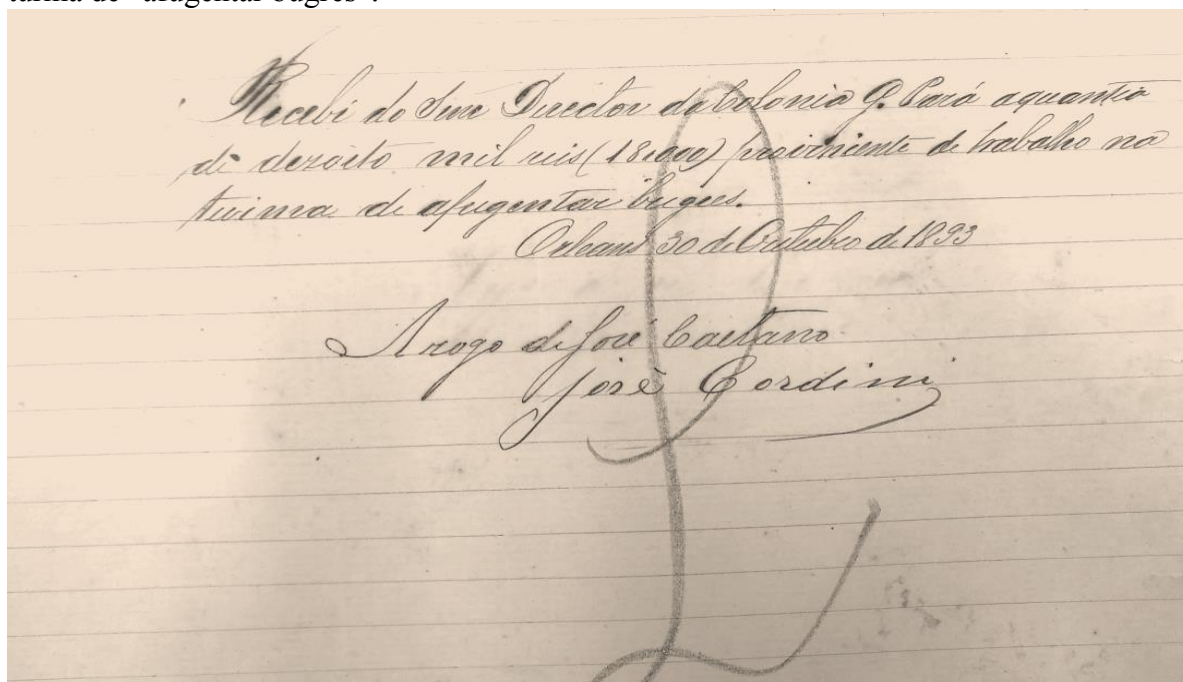 turma de "afugentar bugres".
Recebi do Snre Director da Colonia G. Pará aquantia
de dezoito mil reis (18:000) proviniente de trabalho na
turma de afugentar bugres.
Orleans 30 de Outubro de 1893
Arogo de José Caetano
José Cordini